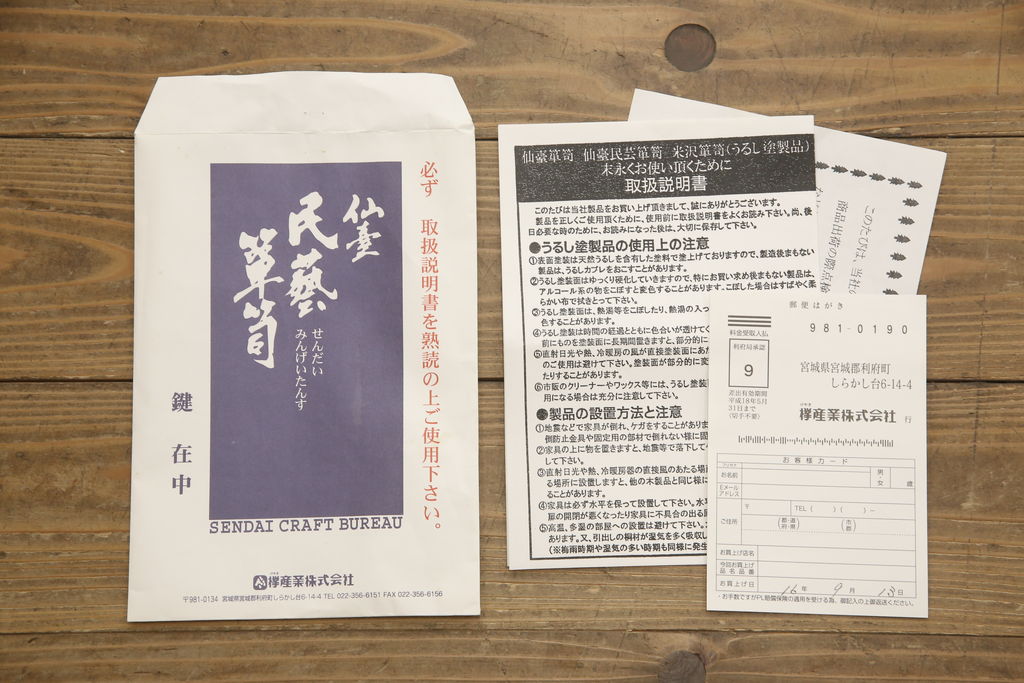 仙臺
民藝
簞笥
せんだい
みんげいたんす
必ず 取扱説明書を熟読の上ご使用下さい。
鍵在中
SENDAI CRAFT BUREAU
欅産業株式会社
〒981-0134 宮城県宮城郡利府町しらかし台6-14-4 TEL 022-356-6151 FAX 022-356-6156
仙臺簞笥 仙臺民芸簞笥 米沢簞笥(うるし塗製品)
末永くお使い頂くために
取扱説明書
このたびは当社製品をお買い上げ頂きまして、誠にありがとうございます。
製品を正しくご使用頂くために、使用前に取扱説明書をよくお読み下さい。尚、後
日必要な時のために、お読みになった後は、大切に保存して下さい。
●うるし塗製品の使用上の注意
①表面塗装は天然うるしを含有した塗料で塗上げておりますので、製造後まもない
製品は、うるしカブレをおこすことがあります。
②うるし塗装面はゆっくり硬化していきますので、特にお買い求め後まもない製品は、
アルコール系の物をこぼすと変色することがあります。こぼした場合はすばやく柔
らかい布で拭きとって下さい。
③うるし塗装面は、熱湯等をこぼしたり、熱湯の入っ
色することがあります。
④うるし塗装は時間の経過とともに色合いが透けてく
前にものを塗装面に長期間置きますと、部分的に
⑤直射日光や熱、冷暖房の風が直接塗装面にあた
のご使用は避けて下さい。塗装面が部分的に変
たりすることがあります。
⑥市販のクリーナーやワックス等には、うるし塗装
用になる場合は充分に注意して下さい。
●製品の設置方法と注意
①地震などで家具が倒れ、ケガをすることがありま
倒防止金具や固定用の部材で倒れない様に固
②家具の上に物を置きますと、地震等で落下して
して下さい。
③直射日光や熱、冷暖房器の直接風のあたる場
る場所に設置しますと、他の木製品と同じ様に
ることがあります。
④家具は必ず水平を保って設置して下さい。水平
扉の開閉が悪くなったり家具に不具合の出る原
⑤高温、多湿の部屋への設置は避けて下さい。
あります。又、引出しの桐材が湿気を多く吸収し
(※梅雨時期や湿気の多い時期も同様に発生
このたびは、当社
商品出荷の際点検
郵便はがき
981-0190
料金受取人払
利府局承認
9
差出有効期間
平成18年5月
31日まで
〈切手不要〉
宮城県宮城郡利府町
しらかし台6-14-4
欅産業株式会社 行
お客様カード
フリガナ
お名前
男・女
歳
Eメール
アドレス
ご住所
〒
TEL ( ) ( ) −
都・道
府・県
市
郡
お買上げ店名
今回お買上げ
品名品番
お買上げ日 16年 9月 13日
・お手数ですがPL賠償保険の適用を受ける為、御記入の上御返送ください。